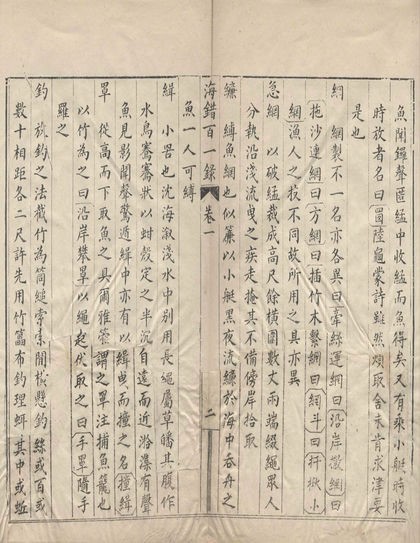 魚聞鑼聲匿緼中收緼而魚得矣又有乘小艇時收
時放者名曰罾陸龜蒙詩雖然煩取舍未肯求津要
是也
網 網製不一名亦各異曰牽絲運網曰沿岸撒網曰
拖沙連網曰方網曰插竹木繫網曰網斗曰扞楸小
網漁人之技不同故所用之具亦異
急網 以破緼裁成高尺餘橫圍數丈兩端綴繩眾人
分執沿淺流曳之疾走掩其不備傍岸拾取
簾 縛魚網也似簾以小艇黑夜流簾於海中吞舟之
魚一人可縛
海錯百一錄 卷一 二
緝 小罟也沈海漵淺水中別用長繩屬草皤其腹作
水鳥騫騫狀以蚶殼定之半沉自遠而近潝濼有聲
魚見影聞聲驚遁緝中亦有以緝曳而撞之名撞緝
罩 從高而下取魚之具爾雅䈇謂之罩注捕魚籠也
以竹為之曰沿岸攀罩以繩起伏取之曰手罩隨手
羅之
釣 旅釣之法截竹為筒縋索宗間橫懸釣絲或百或
數十相距各二尺許先用竹篇有釣理蝦其中或蚯